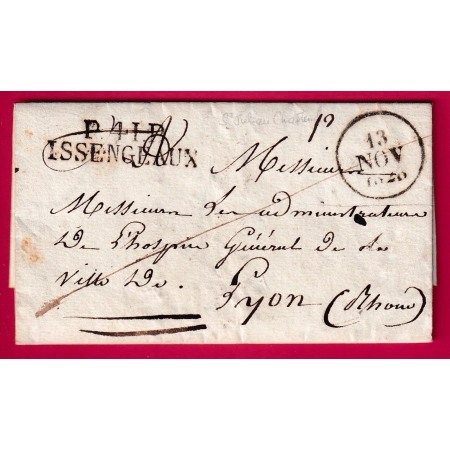 P.41.P.
ISSENGEAUX
13
NOV
1828
Messieurs
Messieurs les administrateurs
De l'hospice Général de la
Ville De Lyon (Rhone)